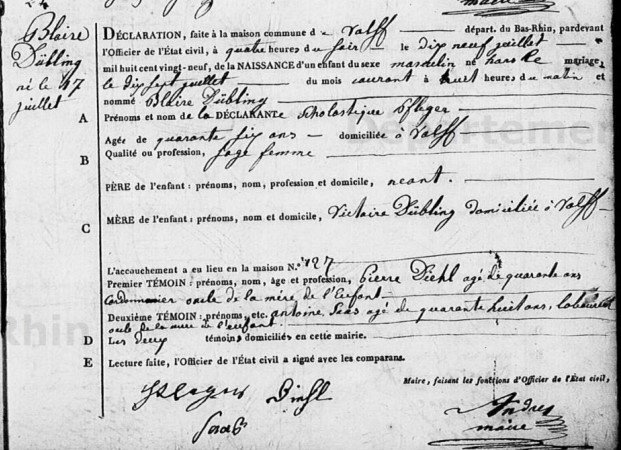 24
maire
Blaise
Dübling
né le 17
juillet
DÉCLARATION, faite à la maison commune de Valff départ. du Bas-Rhin, pardevant
l'Officier de l'État civil, à quatre heures du soir le dix neuf juillet
mil huit cent vingt-neuf, de la NAISSANCE d'un enfant du sexe masculin né hors le mariage,
le dix sept juillet du mois courant à huit heures du matin et
nommé Blaise Dübling
A Prénoms et nom de la DÉCLARANTE Scholastique Pfleger
Agée de quarante six ans domiciliée à Valff
B Qualité ou profession, sage femme
PÈRE de l'enfant : prénoms, nom, profession et domicile, néant.
MÈRE de l'enfant : prénoms, nom et domicile, Victoire Dübling domiciliée à Valff
C
L'accouchement a eu lieu en la maison N.° 127
Premier TÉMOIN : prénoms, nom, âge et profession, Pierre Diehl agé de quarante ans
Cordonnier oncle de la mère de l'Enfant
Deuxième TÉMOIN : prénoms, etc. antoine agé de quarante huit ans, laboureur
oncle de la mere de l'enfant.
D Les deux témoins domiciliés en cette mairie.
E Lecture faite, l'Officier de l'État civil a signé avec les comparans.
Maire, faisant les fonctions d'Officier de l'État civil,
Diehl
Andres
maire
Rhin
Département